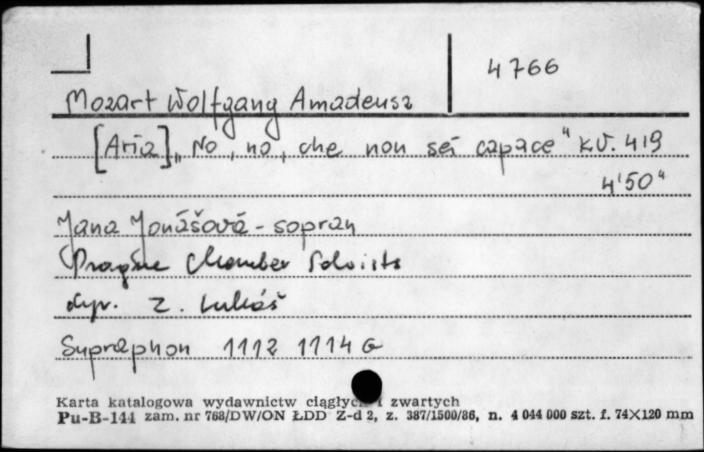 4766
Mozart Wolfgang Amadeusz
[Aria] „No, no, che non sei capace" KV. 419
4'50"
Jana Jonášová - sopran
Prague Chamber Soloists
dyr. Z. Lukáš
Supraphon 1112 1114 G
Karta katalogowa wydawnictw ciągłych i zwartych
Pu-B-144 zam. nr 768/DW/ON ŁDD Z-d 2, z. 387/1500/86, n. 4 044 000 szt. f. 74×120 mm